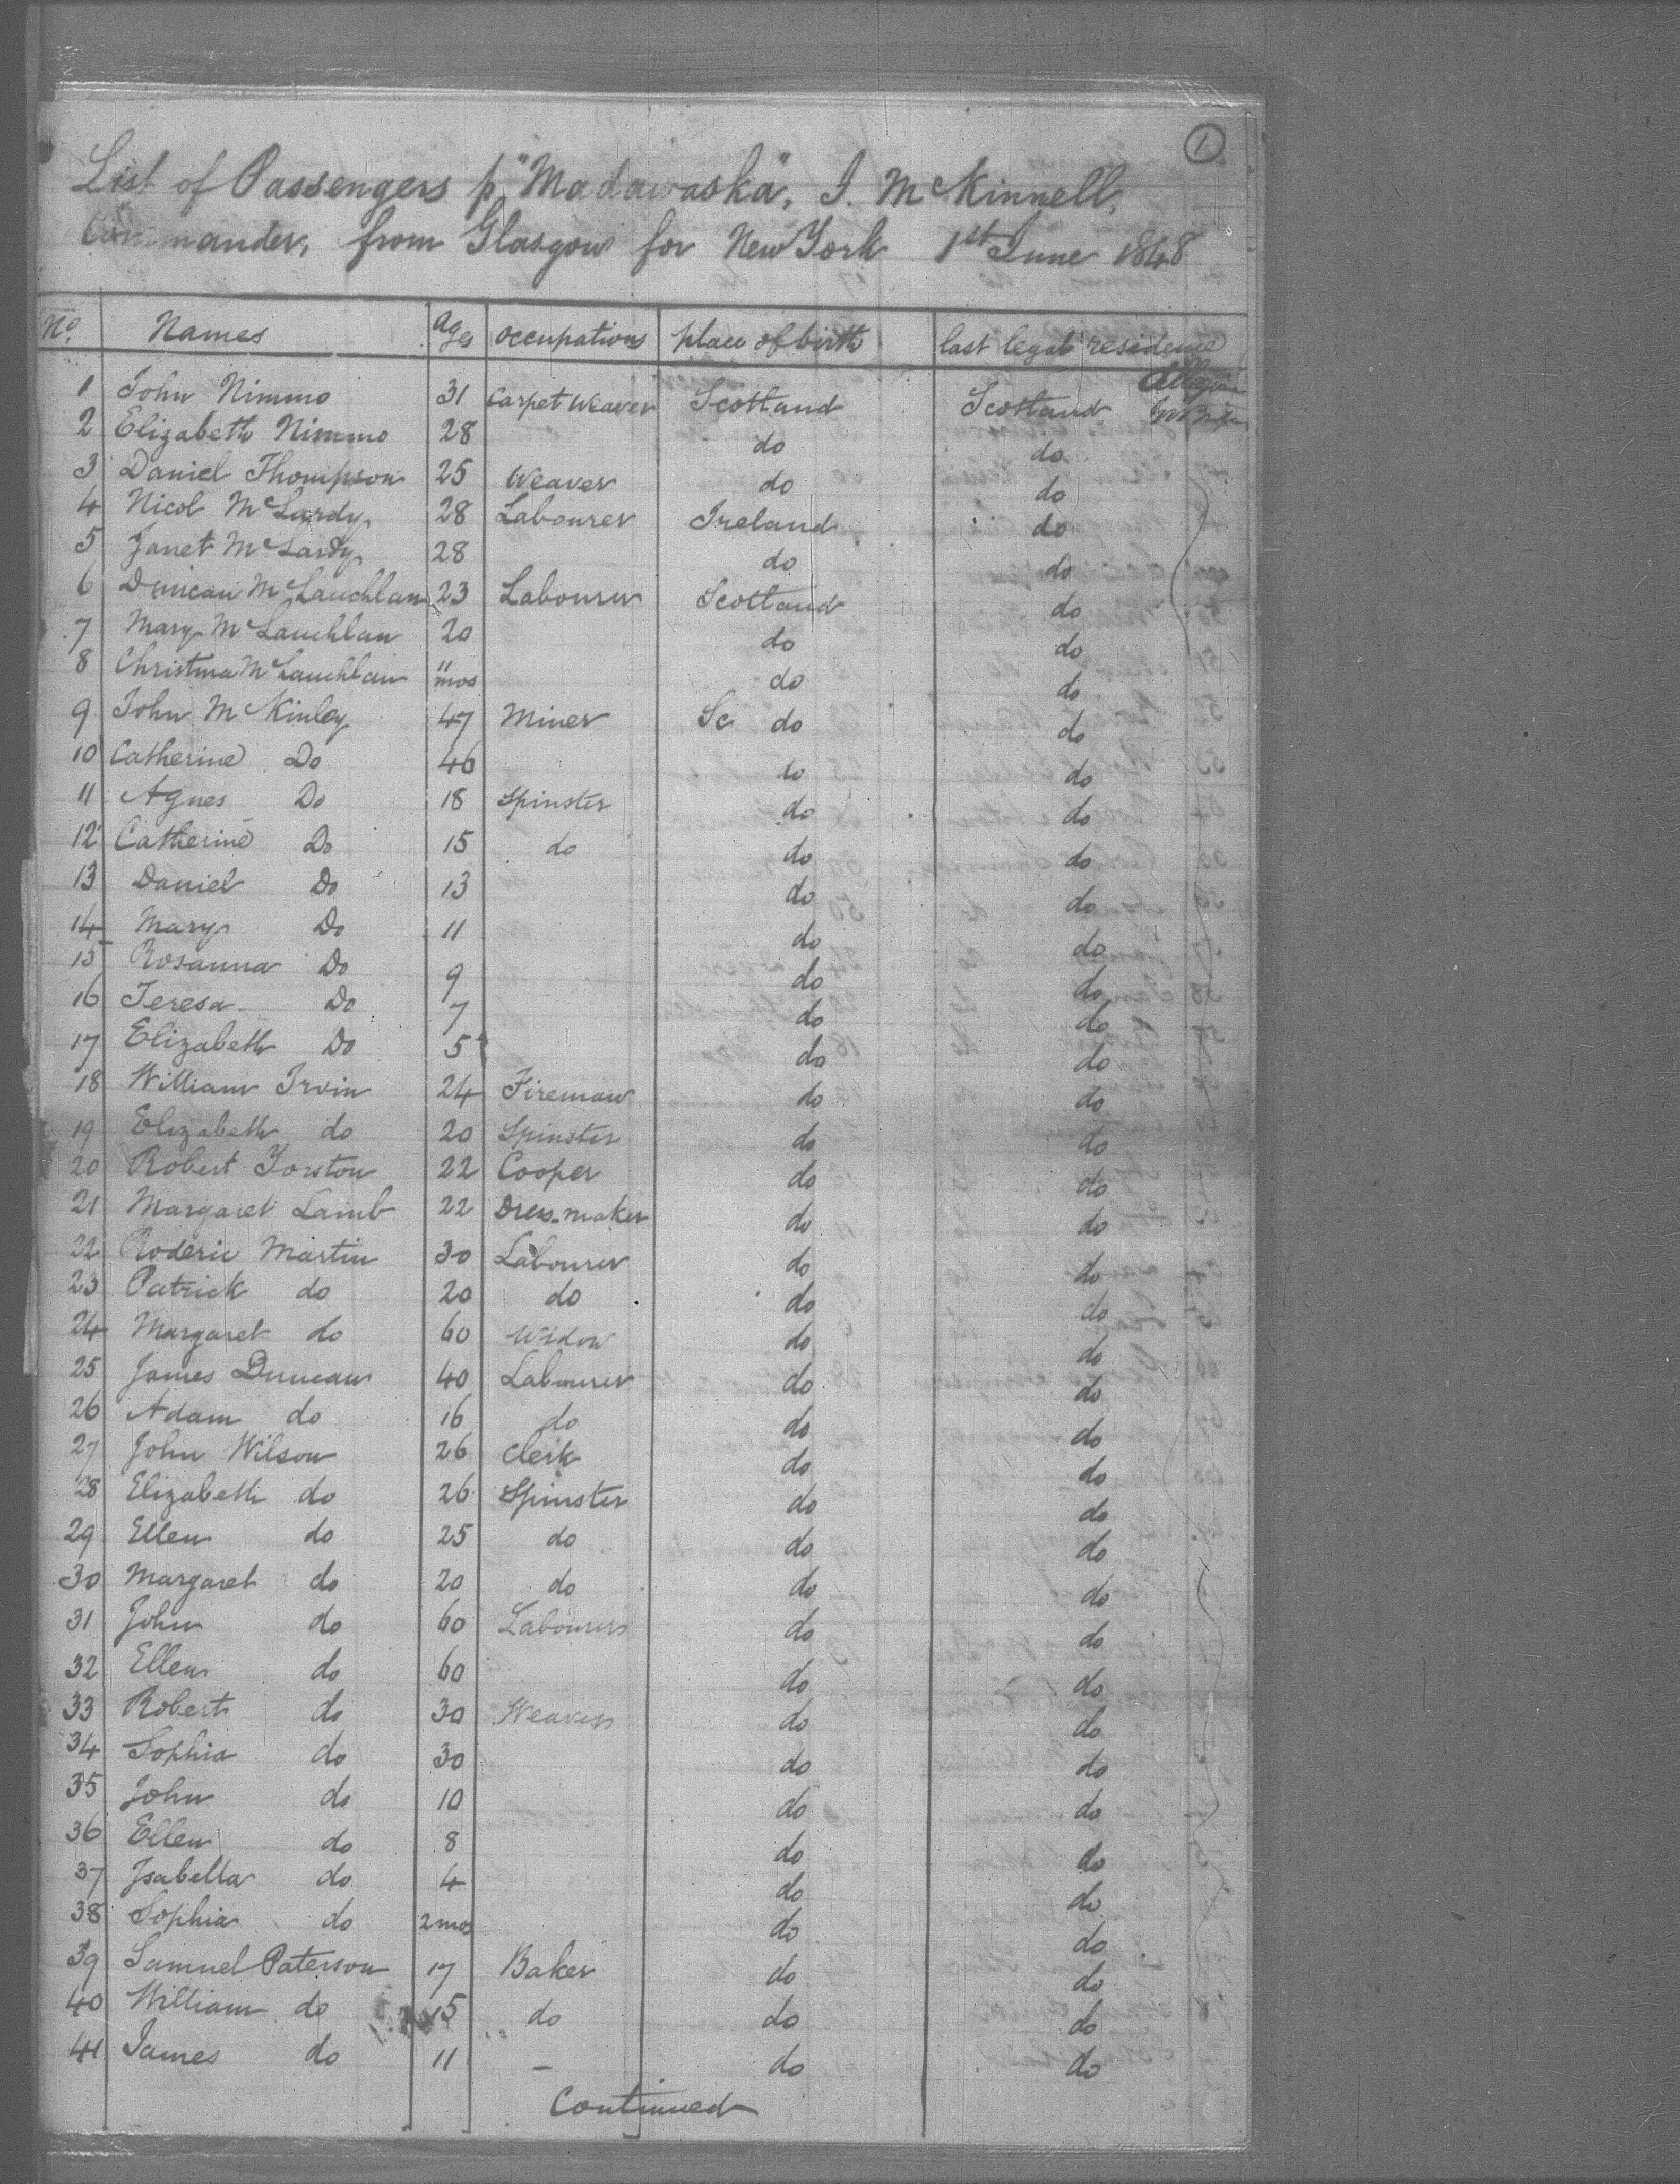 1
List of Passengers p "Madawaska", J. McKinnell,
Commander, from Glasgow for New York 1st June 1848
No. Names Ages Occupations place of birth last legal residence
1 John Nimmo 31 Carpet Weaver Scotland Scotland
2 Elizabeth Nimmo 28 do do
3 Daniel Thompson 25 Weaver do do
4 Nicol McLardy 28 Labourer Ireland do
5 Janet McLardy 28 do do
6 Duncan McLauchlan 23 Labourer Scotland do
7 Mary McLauchlan 20 do do
8 Christina McLauchlan 11 mos do do
9 John McKinley 47 Miner Sc do do
10 Catherine Do 46 do do
11 Agnes Do 18 Spinster do do
12 Catherine Do 15 do do do
13 Daniel Do 13 do do
14 Mary Do 11 do do
15 Rosanna Do 9 do do
16 Teresa Do 7 do do
17 Elizabeth Do 5 do do
18 William Irvin 24 Fireman do do
19 Elizabeth do 20 Spinster do do
20 Robert Yorston 22 Cooper do do
21 Margaret Lamb 22 Dress-maker do do
22 Roderic Martin 30 Labourer do do
23 Patrick do 20 do do do
24 Margaret do 60 Widow do do
25 James Duncan 40 Labourer do do
26 Adam do 16 do do do
27 John Wilson 26 Clerk do do
28 Elizabeth do 26 Spinster do do
29 Ellen do 25 do do do
30 Margaret do 20 do do do
31 John do 60 Labourer do do
32 Ellen do 60 do do
33 Robert do 30 Weaver do do
34 Sophia do 30 do do
35 John do 10 do do
36 Ellen do 8 do do
37 Isabella do 4 do do
38 Sophia do 2 mos do do
39 Samuel Paterson 17 Baker do do
40 William do 15 do do do
41 James do 11 – do do
Continued